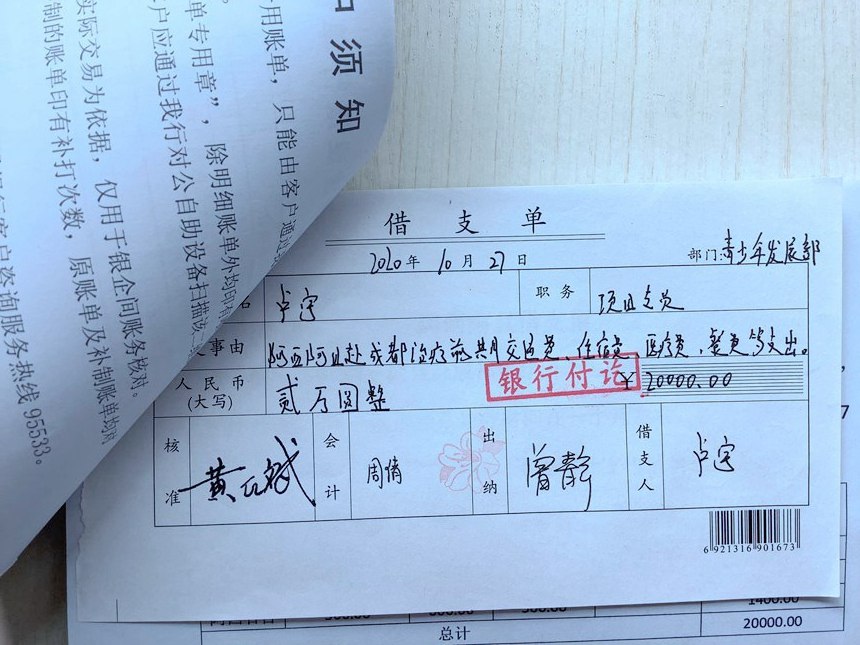 须知
用账单，只能由客户通过
单专用章”，除明细账单外均
户应通过我行对公自助设备扫描
实际交易为依据，仅用于银企间账务核对。
制的账单印有补打次数，原账单及补制账单均
客户咨询服务热线 95533。
借支单
2020年10月27日
部门:青少年发展部
名 卢宇 职务 项目专员
事由 阿西阿且赴成都治疗前期交通费、住宿费 医疗费、餐费等支出。
人民币(大写) 贰万圆整 ¥20000.00
银行付讫
核准 会计 周倩 出纳 曾静 借支人 卢宇
6 921316 901673
1400.00
总计 20000.00